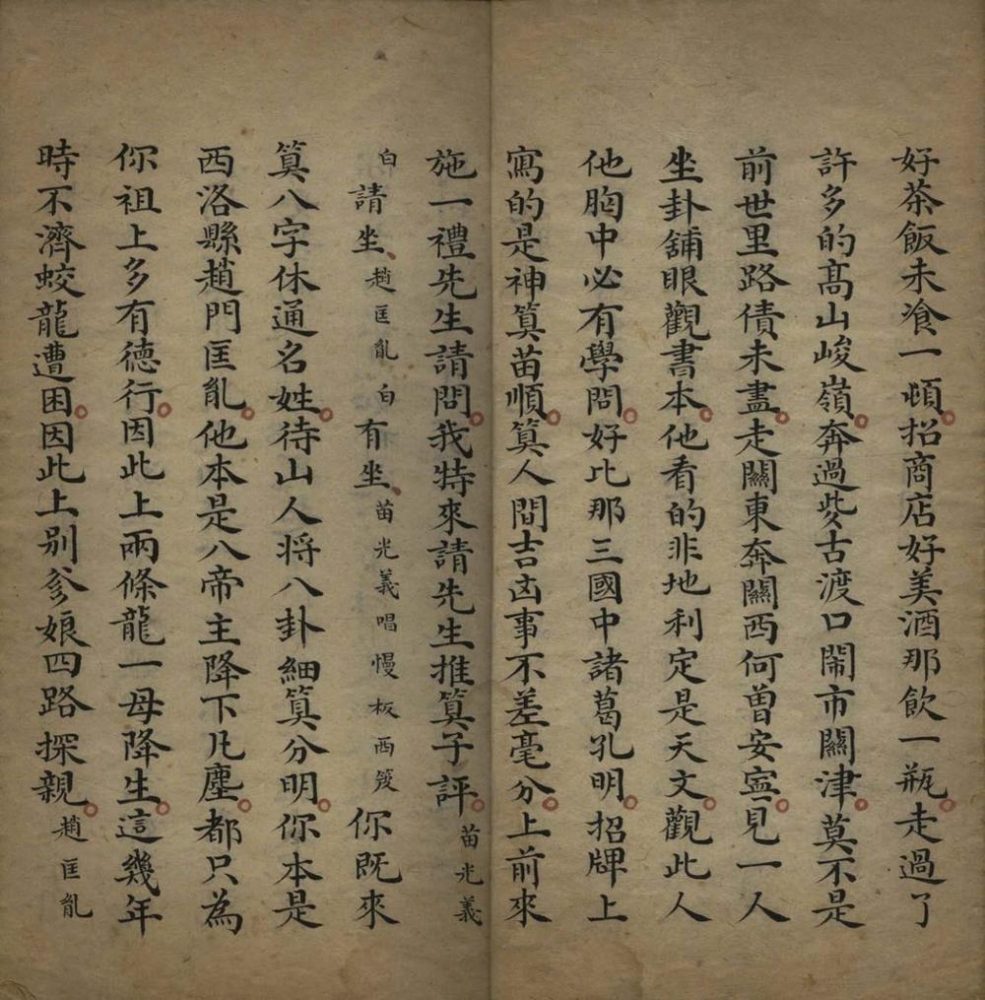 好茶飯未飡一頓。招商店好美酒那飲一瓶。走過了
許多的髙山峻嶺。奔過些古渡口鬧市關津。莫不是
前世里路債未盡。走關東奔關西何曽安寍。見一人
坐卦舖眼觀書本。他看的非地利定是天文。觀此人
他胸中必有學問。好比那三國中諸葛孔明。招牌上
寫的是神筭苗順。筭人間吉凶事不差毫分。上前來
施一禮先生請問。我特來請先生推筭子評。苗光義
白請坐、趙匡胤白有坐、苗光義唱慢板西皮你既來
筭八字休通名姓。待山人將八卦細筭分明。你本是
西洛縣趙門匡胤。他本是八帝主降下凡塵。都只為
你祖上多有德行。因此上兩條龍一母降生。這幾年
時不濟蛟龍遭困。因此上別爹娘四路探親。趙匡胤